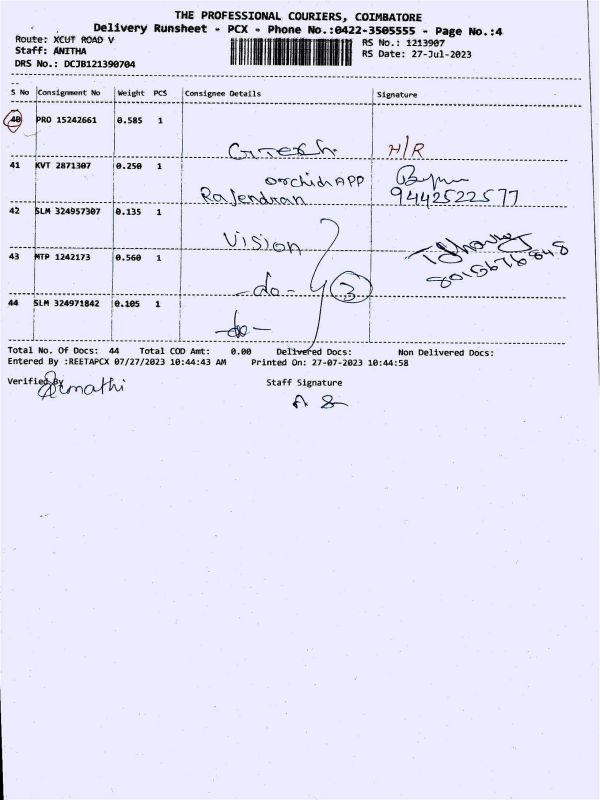 THE PROFESSIONAL COURIERS, COIMBATORE
Delivery Runsheet - PCX - Phone No.:0422-3505555 - Page No.:4
Route: XCUT ROAD V
RS No.: 1213907
Staff: ANITHA
RS Date: 27-Jul-2023
DRS No.: DCJB121390704
S No Consignment No Weight PCS Consignee Details Signature
40 PRO 15242661 0.585 1
H/R
41 KVT 2871307 0.250 1
orchid APP
Rajendran 9442522577
42 SLM 324957307 0.135 1
Vision
43 MTP 1242173 0.560 1
-do- 3
8015676848
44 SLM 324971842 0.105 1
-do-
Total No. Of Docs: 44 Total COD Amt: 0.00 Delivered Docs: Non Delivered Docs:
Entered By :REETAPCX 07/27/2023 10:44:43 AM Printed On: 27-07-2023 10:44:58
Verified By Staff Signature